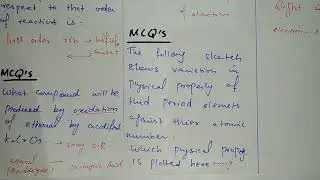 respect to that order
of reaction is.
first order rxn → half life
constant
MCQ's
What compound will be
produced by oxidation
of ethanal by acidified
K2Cr2O7
ethanal →
of electron
MCQ's
The following sketch
shows variation in
physical property of
third period elements
against thier atomic
number.
Which physical propey
is plotted here